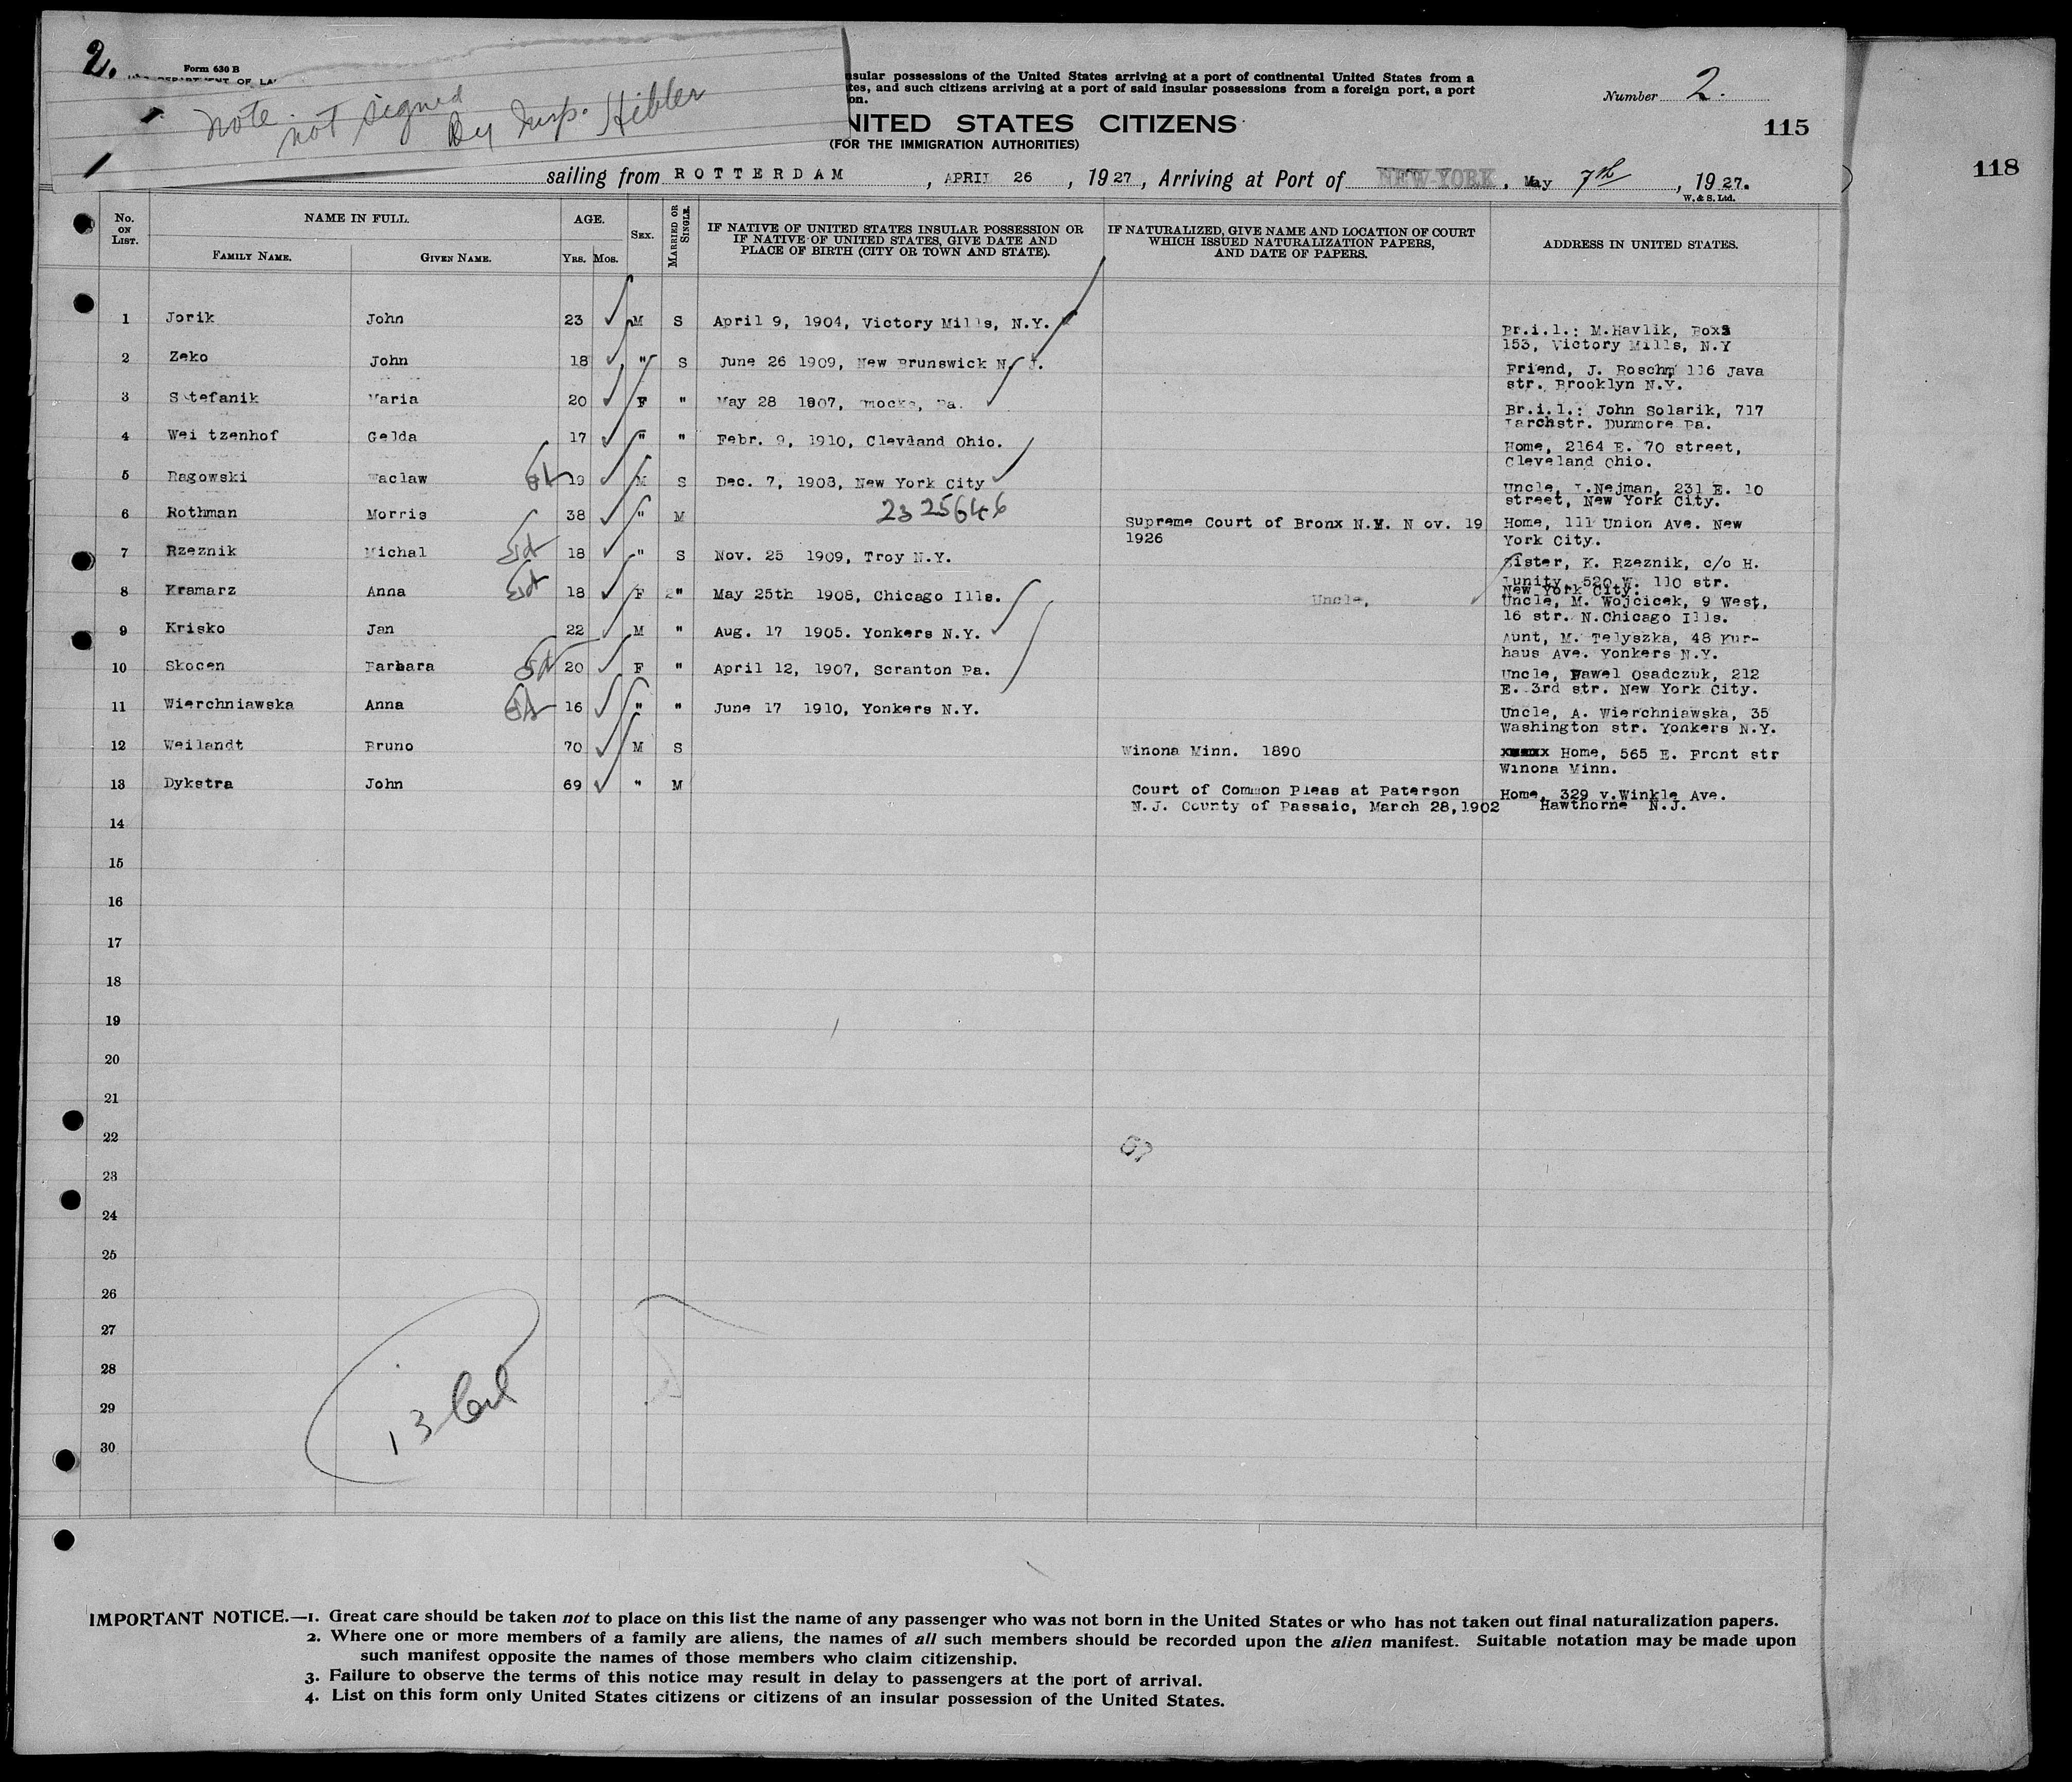 2.
Form 630 B
Note.
not signed
By Insp. Hibler
nsular possessions of the United States arriving at a port of continental United States from a
tes, and such citizens arriving at a port of said insular possessions from a foreign port, a port
on.
Number 2.
NITED STATES CITIZENS
115
(FOR THE IMMIGRATION AUTHORITIES)
118
sailing from ROTTERDAM, APRIL 26, 1927, Arriving at Port of NEW-YORK, May 7th, 1927.
W. & S. Ltd.
No. ON LIST. NAME IN FULL. AGE. SEX. MARRIED OR SINGLE. IF NATIVE OF UNITED STATES INSULAR POSSESSION OR IF NATIVE OF UNITED STATES, GIVE DATE AND PLACE OF BIRTH (CITY OR TOWN AND STATE). IF NATURALIZED, GIVE NAME AND LOCATION OF COURT WHICH ISSUED NATURALIZATION PAPERS, AND DATE OF PAPERS. ADDRESS IN UNITED STATES.
FAMILY NAME. GIVEN NAME. YRS. MOS.
1 Jorik John 23 M S April 9, 1904, Victory Mills, N.Y. Br.i.l.: M.Havlik, Box
153, Victory Mills, N.Y
2 Zeko John 18 " S June 26 1909, New Brunswick N.J. Friend, J. 116 Java
str. Brooklyn N.Y.
3 Stefanik Maria 20 F " May 28 1907, Pa. Br.i.l.: John Solarik, 717
Larchstr. Dunmore Pa.
4 Weitzenhof Gelda 17 " " Febr. 9, 1910, Clevdand Ohio. Home, 2164 E. 70 street,
Cleveland Ohio.
5 Ragowski Waclaw 19 M S Dec. 7, 1908, New York City Uncle, Nejman, 231 E. 10
street, New York City.
6 Rothman Morris 38 " M 2325646 Supreme Court of Bronx N.Y. Nov. 19
1926 Home, 111 Union Ave. New
York City.
7 Rzeznik Michal 18 " S Nov. 25 1909, Troy N.Y. Sister, K. Rzeznik, c/o H.
520 W. 110 str.
New York City.
8 Kramarz Anna 18 F " May 25th 1908, Chicago Ills. Uncle, Uncle, M. Wojcicek, 9 West,
16 str. N.Chicago Ills.
9 Krisko Jan 22 M " Aug. 17 1905. Yonkers N.Y. Aunt, M. Telyszka, 48 Kur-
haus Ave. Yonkers N.Y.
10 Skocen Barbara 20 F " April 12, 1907, Scranton Pa. Uncle, Pawel Osadczuk, 212
E. 3rd str. New York City.
11 Wierchniawska Anna 16 " " June 17 1910, Yonkers N.Y. Uncle, A. Wierchniawska, 35
Washington str. Yonkers N.Y.
12 Weilandt Bruno 70 M S Winona Minn. 1890 Home, 565 E. Front str
Winona Minn.
13 Dykstra John 69 " M Court of Common Pleas at Paterson
N.J. County of Passaic, March 28,1902 Home, 329 v.Winkle Ave.
Hawthorne N.J.
14
15
16
17
18
19
20
21
22
23
24
25
26
27
28
29
30
IMPORTANT NOTICE.—1. Great care should be taken not to place on this list the name of any passenger who was not born in the United States or who has not taken out final naturalization papers.
2. Where one or more members of a family are aliens, the names of all such members should be recorded upon the alien manifest. Suitable notation may be made upon
such manifest opposite the names of those members who claim citizenship.
3. Failure to observe the terms of this notice may result in delay to passengers at the port of arrival.
4. List on this form only United States citizens or citizens of an insular possession of the United States.